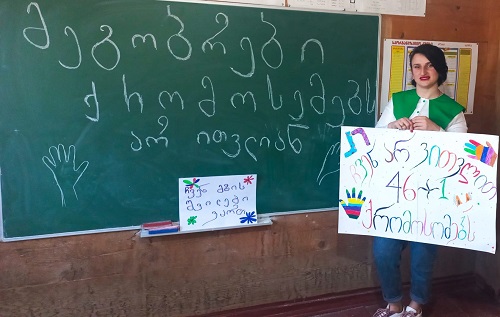 მეგობრები
ქრომოსომებს
არ ითვლიან
ჩვენ მზის
შვილები
ვართ
ჩვენ არ ვითვლით
46+1
ქრომოსომებს